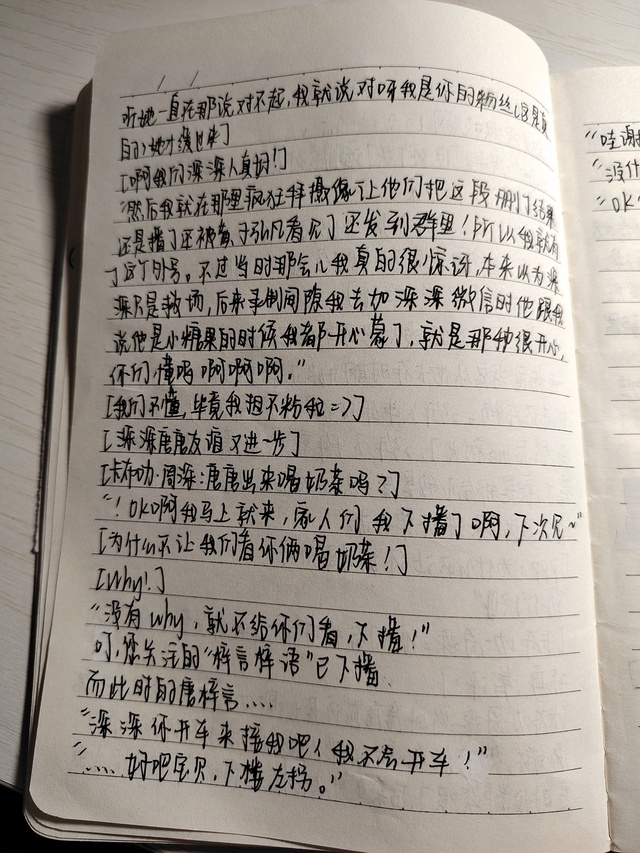 听她一直在那说对不起,我就说对呀我是你的粉丝(这是真
的)她才缓过来]
[啊我们深深人真好!]
"然后我就在那里疯狂拜摄像、让他们把这段删了结果
还是播了还被黄子弘凡看见了还发到群里!所以我就有
了这个外号。不过当时那会儿我真的很惊讶,本来以为深
深只是救场,后来录制间隙我去加深深微信时他跟我
说他是小糖果的时候我都开心蒙了,就是那种很开心,
你们懂吗啊啊啊。"
[我们不懂,毕竟我担不粉我=)]
[深深唐唐友谊又进一步]
[卡布叻·周深:唐唐出来喝奶茶吗?]
"!OK啊我马上就来,家人们我下播了啊,下次见~"
[为什么不让我们看你俩喝奶茶!]
[Why!]
"没有why,就不给你们看,下播!"
叮,您关注的"梓言梓语"已下播
而此时的唐梓言....
"深深你开车来接我吧(我不会开车!"
".... 好吧宝贝,下楼左拐。"
"哇谢
"没什
"OK